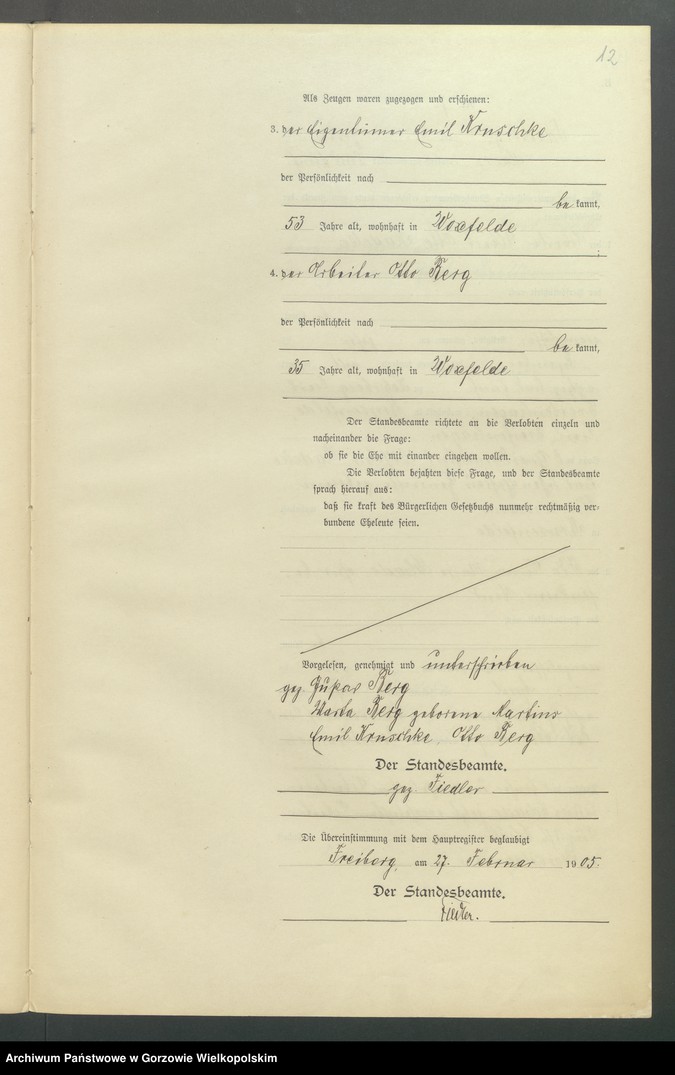 12
Als Zeugen waren zugezogen und erschienen:
3. der Eigentümer Emil Kruschke
der Persönlichkeit nach
be kannt,
53 Jahre alt, wohnhaft in Woxfelde
;
4. der Arbeiter Otto Berg
der Persönlichkeit nach
be kannt,
35 Jahre alt, wohnhaft in Woxfelde
Der Standesbeamte richtete an die Verlobten einzeln und
nacheinander die Frage:
ob sie die Ehe mit einander eingehen wollen.
Die Verlobten bejahten diese Frage, und der Standesbeamte
sprach hierauf aus:
daß sie kraft des Bürgerlichen Gesetzbuchs nunmehr rechtmäßig ver-
bundene Eheleute seien.
Vorgelesen, genehmigt und unterschrieben
gez. Berg
Berg geborene Martins
Emil Kruschke, Otto Berg
Der Standesbeamte.
gez Fiedler
Die Übereinstimmung mit dem Hauptregister beglaubigt
Freiberg, am 27. Februar 1905.
Der Standesbeamte.
Fiedler.
Archiwum Państwowe w Gorzowie Wielkopolskim